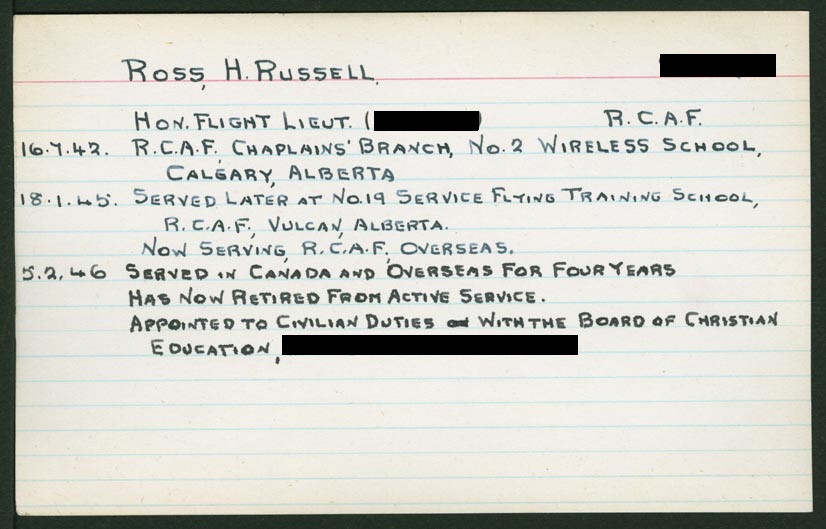 ROSS, H. RUSSELL.
HON. FLIGHT LIEUT. ( ) R.C.A.F.
16.7.42. R.C.A.F. CHAPLAINS' BRANCH, NO. 2 WIRELESS SCHOOL,
CALGARY, ALBERTA
18.1.45. SERVED LATER AT NO.19 SERVICE FLYING TRAINING SCHOOL,
R.C.A.F., VULCAN, ALBERTA.
NOW SERVING, R.C.A.F. OVERSEAS.
5.2.46 SERVED IN CANADA AND OVERSEAS FOR FOUR YEARS
HAS NOW RETIRED FROM ACTIVE SERVICE.
APPOINTED TO CIVILIAN DUTIES WITH THE BOARD OF CHRISTIAN
EDUCATION,